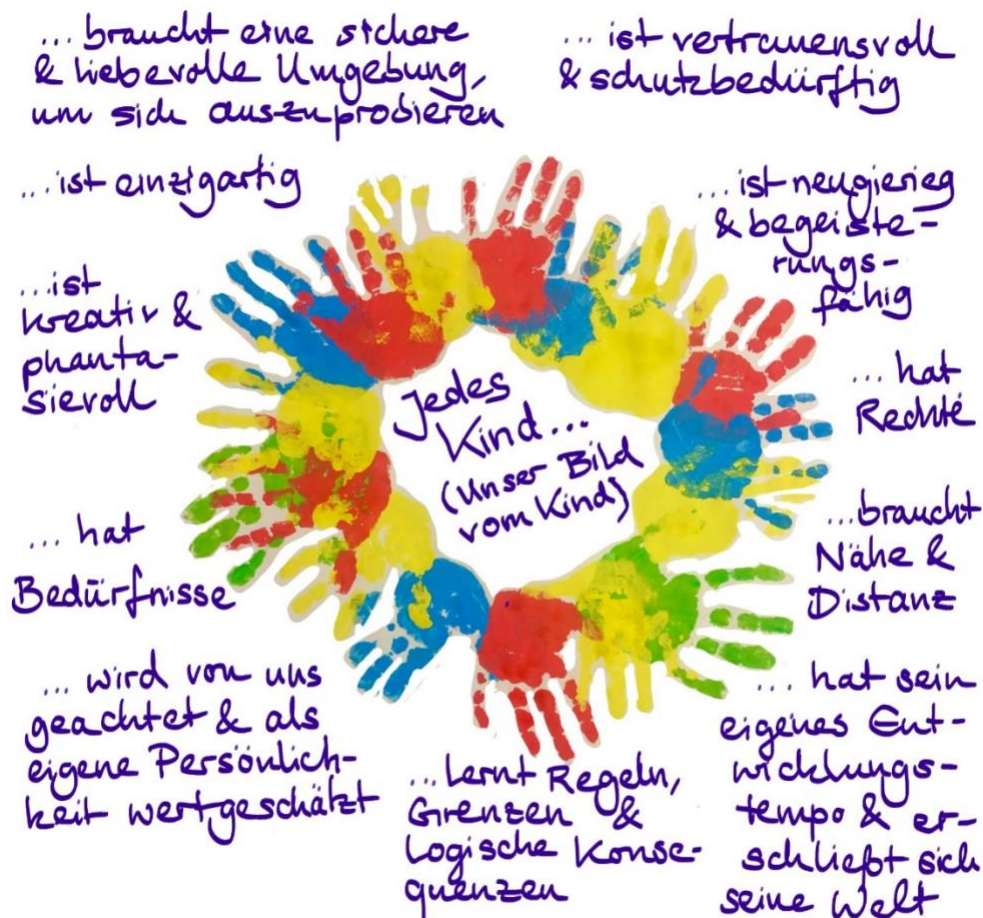 Jedes
Kind...
(Unser Bild
vom Kind)
... braucht eine sichere
& liebevolle Umgebung,
um sich auszuprobieren
... ist vertrauensvoll
& schutzbedürftig
... ist einzigartig
... ist neugierieg
& begeiste-
rungs-
fähig
... ist
kreativ &
phanta-
sievoll
... hat
Rechte
... hat
Bedürfnisse
... braucht
Nähe &
Distanz
... wird von uns
geachtet & als
eigene Persönlich-
keit wertgeschätzt
... lernt Regeln,
Grenzen &
logische Konse-
quenzen
... hat sein
eigenes Ent-
wicklungs-
tempo & er-
schließt sich
seine Welt